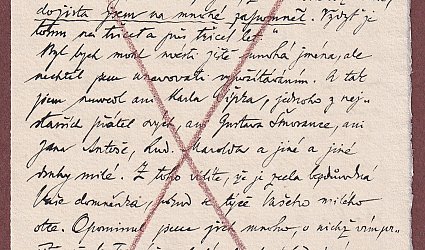 dojista jsem na mnohé zapomněl. Vždyť je
tomu už třicet a půl třicet let."
Byl bych mohl uvésti ještě mnohá jména, ale
nechtěl jsem unavovati vypočítáváním. A tak
jsem neuvedl ani Karla Vipka, jednoho z nej-
starších přátel svých, ani Gustava Švorance, ani
Jana Antoše, Lud. Marolda a jiné a jiné
druhy milé. Z toho vidíte, že je zcela bezdůvodná
Vaše domněnka, pokud se týče Vašeho milého
otce. Opominul jsem jich mnoho, o nichž vím